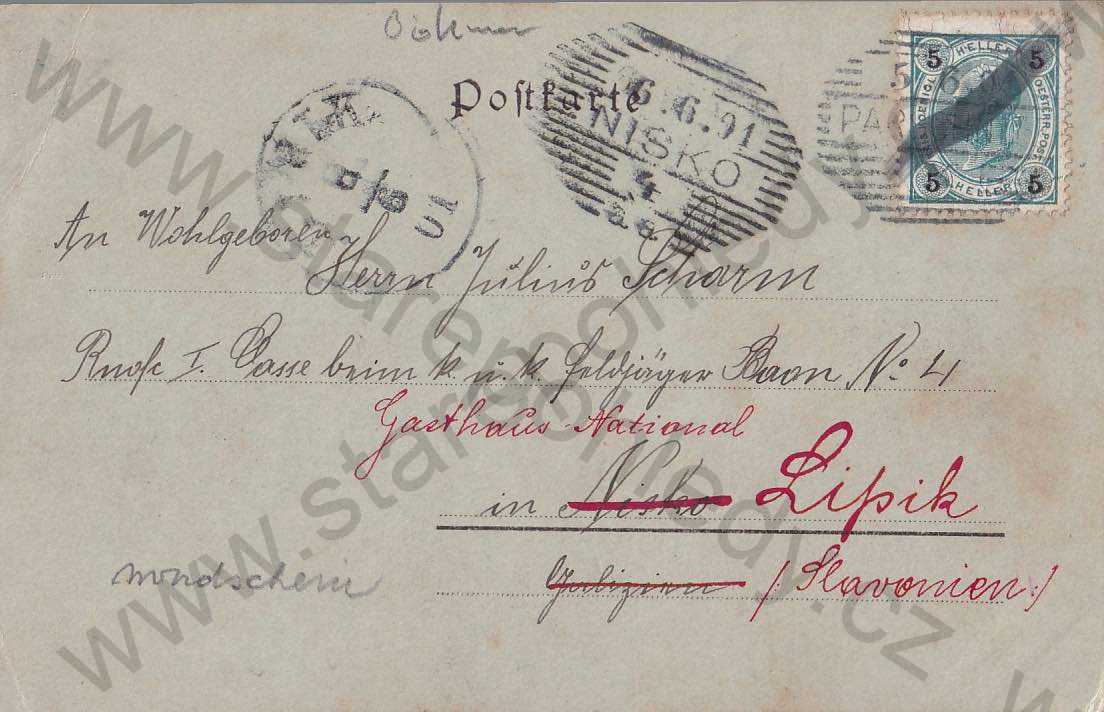 Postkarte
6.6.01
NISKO
4
01
5 HELLER 5
OESTERR. POST
5 HELLER 5
An Wohlgeboren
Herrn Julius Scharm
I. Casse beim k u. k. Feldjäger Baon No 4
Gasthaus National
in Nisko Lipik
Galizien (Slavonien)
mondschein
www.starepohledy.cz